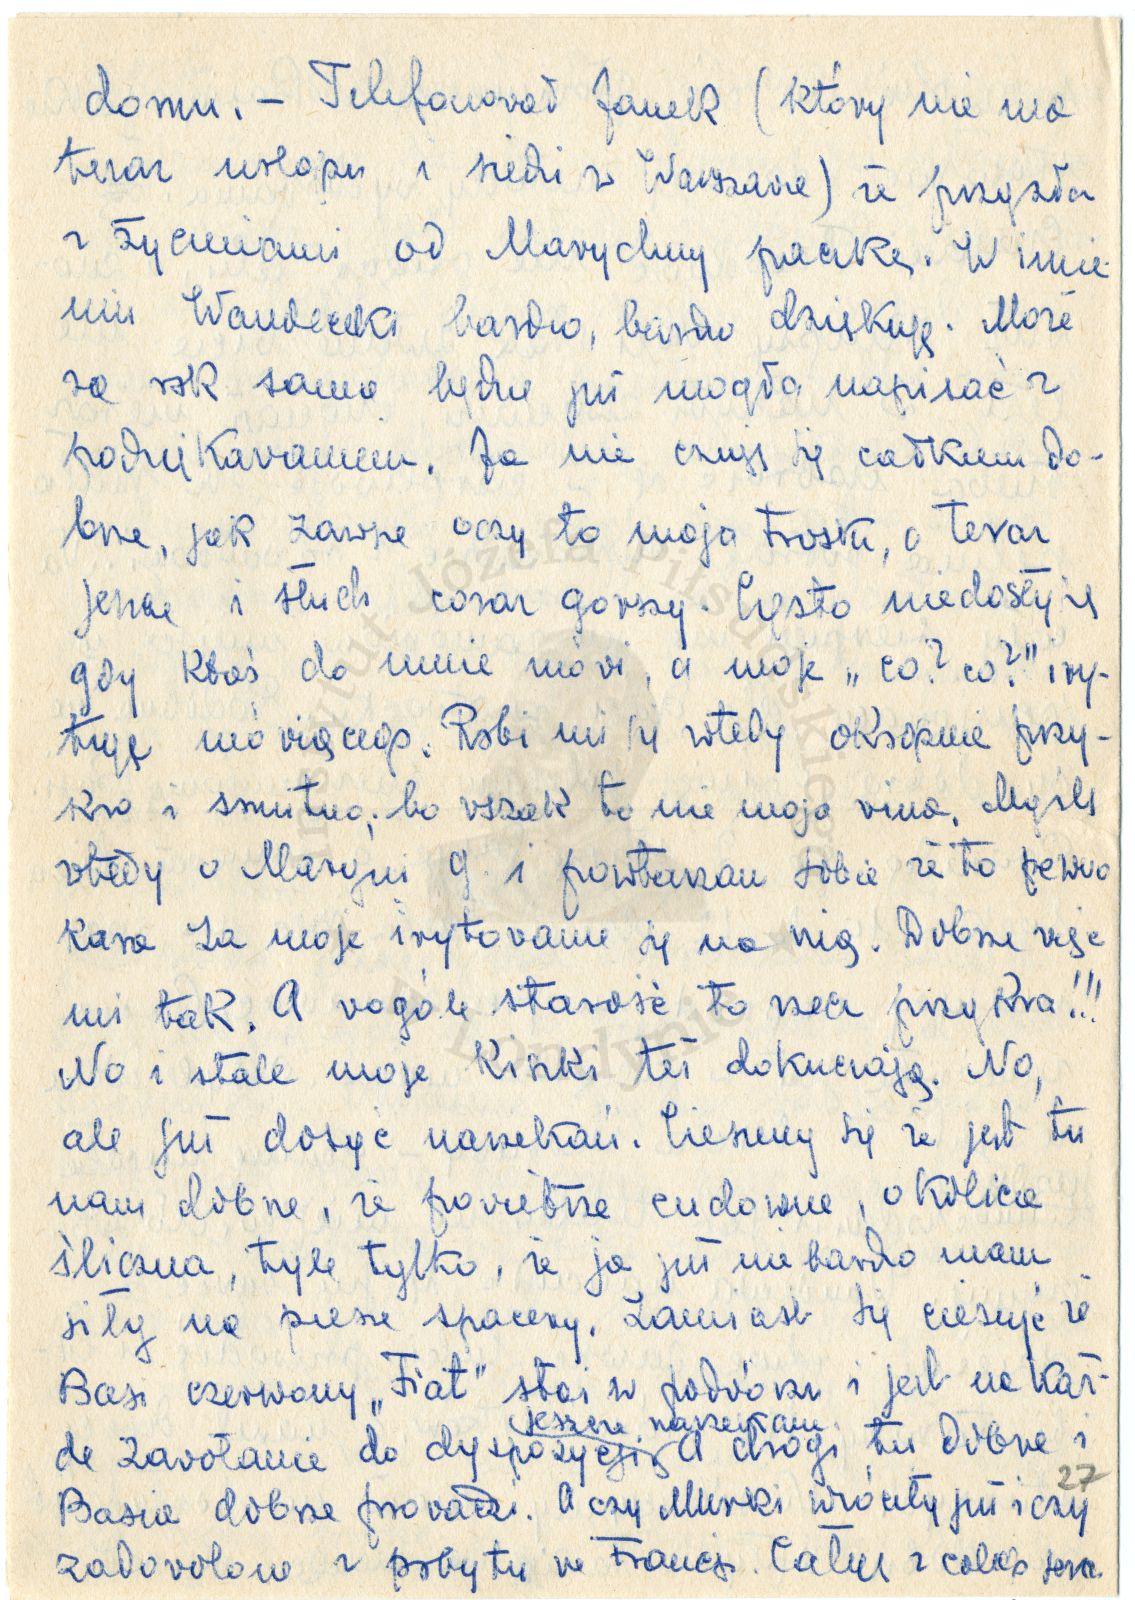 domu. – Telefonował Janek (który nie ma
teraz urlopu i siedzi w Warszawie) że przyszła
z życzeniami od Marychny paczka. W imie-
niu Wandeczki bardzo, bardzo dziękuję. Może
za rok sama będzie już mogła napisać z
podziękowaniem. Ja nie czuję się całkiem do-
brze, jak zawsze oczy to moja troska, a teraz
jeszcze i słuch coraz gorszy. Często niedosłyszę
gdy ktoś do mnie mówi, a moje „co? co?" iry-
tuje mówiącego. Robi mi się wtedy okropnie przy-
kro i smutno, bo wszak to nie moja wina. Myślę
wtedy o Maryni G. i powtarzam sobie że to pewno
kara za moje irytowanie się na nią. Dobrze więc
mi tak. A wogóle starość to rzecz przykra!!!
No i stale moje kiszki też dokuczają. No,
ale już dosyć narzekań. Cieszmy się że jest tu
nam dobrze, że powietrze cudowne, okolica
śliczna, tyle tylko, że ja już nie bardzo mam
siły na piesze spacery. Zamiast się cieszyć że
Basi czerwony „Fiat" stoi w podwórzu i jest na każ-
jeszcze narzekam.
de zawołanie do dyspozycji, A drogi tu dobre i
27
Basia dobrze prowadzi. A czy Murki wróciły już i czy
zadowolone z pobytu we Francji. Całuję z całego serca
Instytut Józefa Piłsudskiego
w Londynie